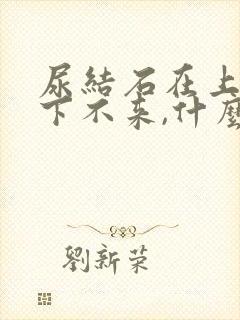 尿結石在上
下不来,什麼
劉新荣